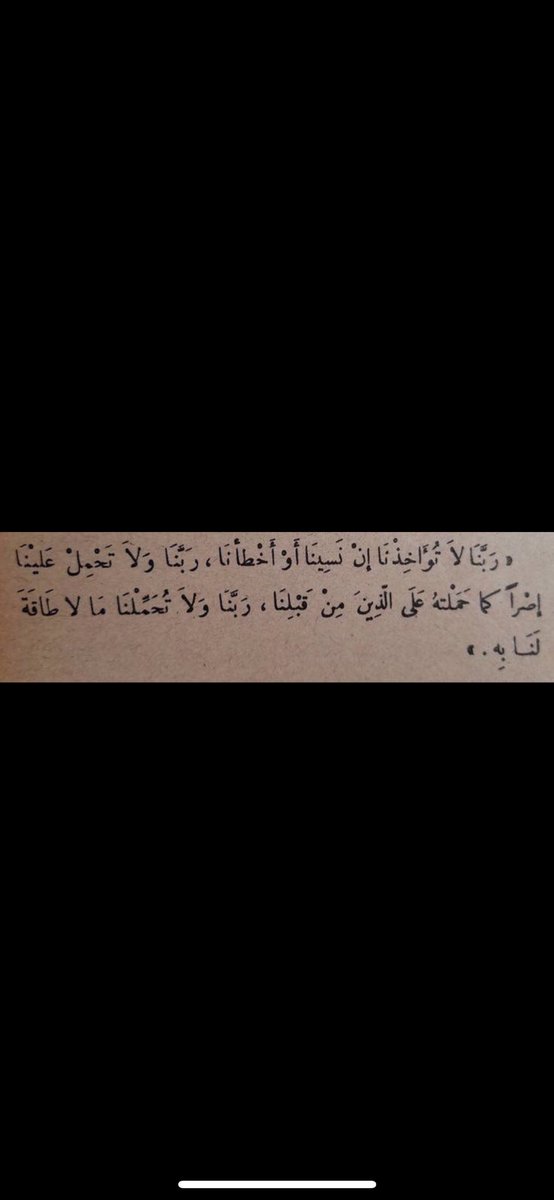 « رَبَّنَا لاَ تُؤَاخِذْنَا إنْ نَسِينَا أَوْ أَخْطأْنَا ، رَبَّنَا وَلاَ تَحْمِلْ عَلَيْنَا
إصْراً كما حَمَلْتهُ عَلَى الّذِينَ مِنْ قَبْلِنَا ، رَبَّنَا وَلاَ تُحَمِّلْنَا مَا لا طَاقَةَ
لَنَا بِهِ . »